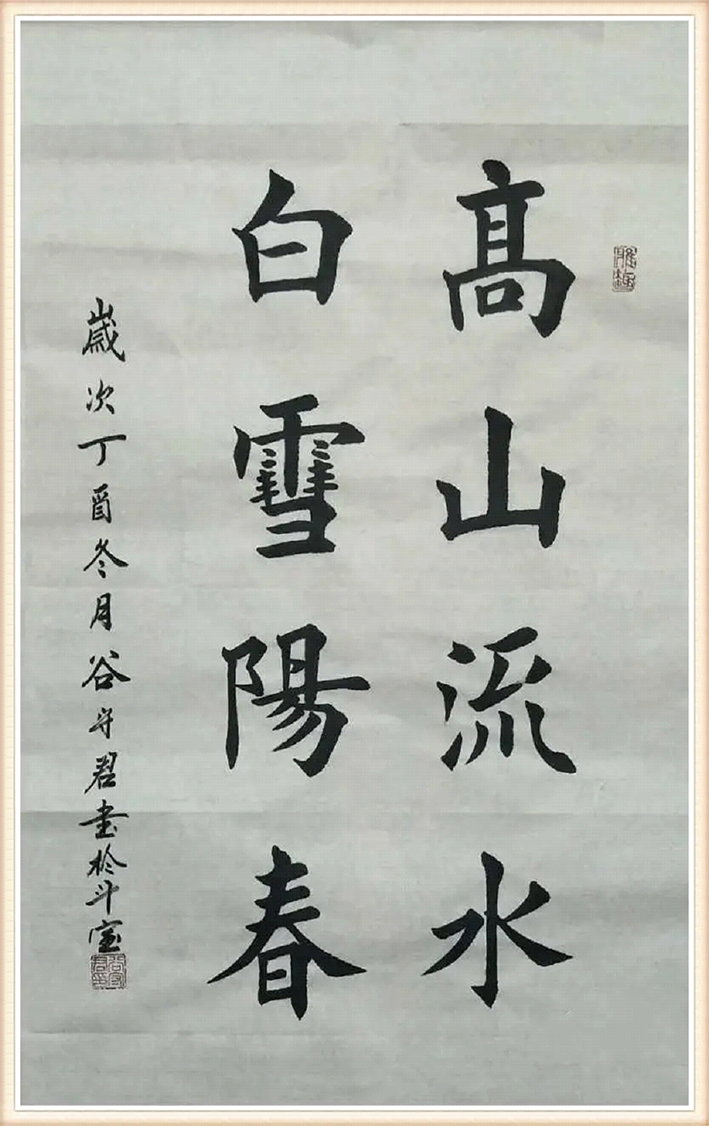 髙山流水
白雪陽春
歲次丁酉冬月谷守君書於斗室